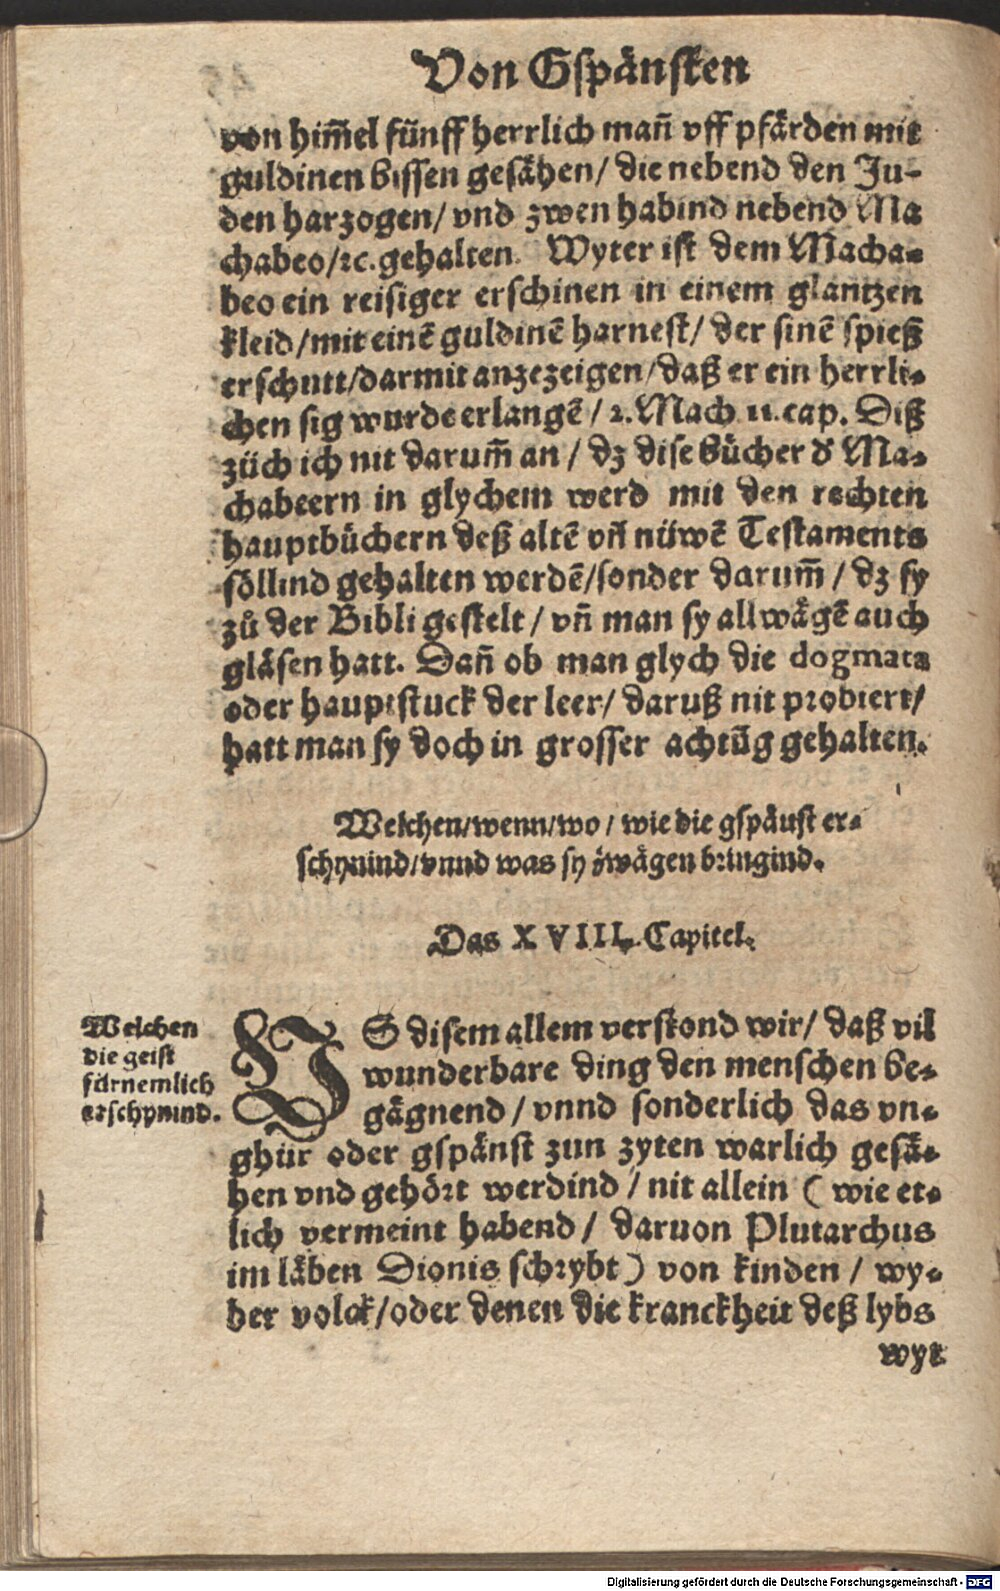 Von Gspänsten
von him̃el fünff herrlich mañ vff pfärden mit
guldinen bissen gesähen/ die nebend den Ju-
den harzogen/ vnd zwen habind nebend Ma
chabeo/ ꝛc. gehalten. Wyter ist dem Macha-
beo ein reisiger erschinen in einem glantzen
kleid/ mit einẽ guldinẽ harnest/ der sinẽ spieß
erschutt/ darmit anzezeigen/ daß er ein herrli-
chen sig wurde erlangẽ/ 2. Mach. 11. cap. Diß
züch ich nit darum̃ an/ dz dise bücher ď Ma-
chabeern in glychem werd mit den rechten
hauptbüchern deß altẽ vñ nüwẽ Testaments
söllind gehalten werdẽ/ sonder darum̃/ dz sy
zů der Bibli gestelt/ vñ man sy allwägẽ auch
gläsen hatt. Dañ ob man glych die dogmata
oder hauptstuck der leer/ daruß nit probiert/
hatt man sy doch in grosser achtũg gehalten.
Welchen/ wenn/ wo/ wie die gspänst er-
schynind/ vnnd was sy zwägen bringind.
Das XVIII. Capitel.
Welchen
die geist
fürnemlich
erschynind.
VS disem allem verstond wir/ daß vil
wunderbare ding den menschen be-
gägnend/ vnnd sonderlich das vn-
ghür oder gspänst zun zyten warlich gesä-
hen vnd gehört werdind/ nit allein (wie et-
lich vermeint habend/ daruon Plutarchus
im läben Dionis schrybt) von kinden/ wy-
ber volck/ oder denen die kranckheit deß lybs
wyt
Digitalisierung gefördert durch die Deutsche Forschungsgemeinschaft - DFG